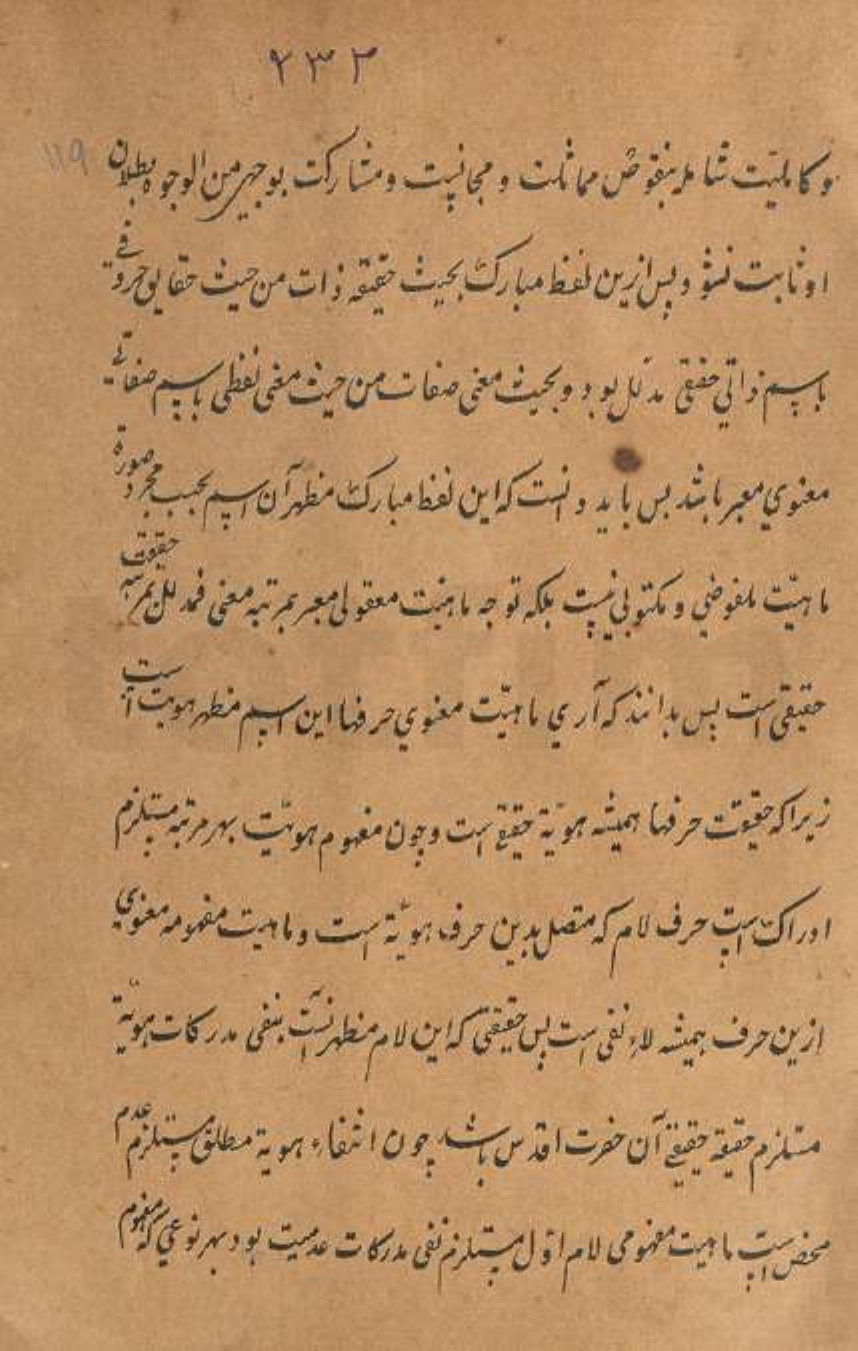 ۲۳۲
۱۱۹
و کاملیت شامله بنقوص مماثلت و مجانست و مشارکت بوجهی من الوجوه بطلان
او ثابت نشود پس ازین لفظ مبارک بحیث حقیقة ذات من حیث حقایق حروفی
باسم ذاتی حقیقی مدلل بود و بحیث معنی صفات من حیث معنی لفظی باسم صفاتی
معنوی معبر باشد پس باید دانست که این لفظ مبارک مظهر آن اسم بحسب مجرد صورة
ماهیّت ملفوظی و مکتوبی نیست بلکه توجه ماهیّت معقولی معبر بمرتبه معنی بمرتبه حقیقت
حقیقی است پس بدانند که آری ماهیّت معنوی حرفها این اسم مظهر هویت است
زیرا که حقیقت حرفها همیشه هویّة حقیقی است و چون مفهوم هویّت بهر مرتبه مستلزم
ادراک است حرف لام که متصل بدین حرف هویّة است و ماهیت مفهومه معنوی
ازین حرف همیشه لاء نفی است پس حقیقی که این لام مظهر آنست بنفی مدرکات هویّة
مستلزم حقیقة حقیقی آن حضرت اقدس باشد چون انتفاء هویة مطلق مستلزم عدم
محض است ماهیت مفهومی لام اوّل مستلزم نفی مدرکات عدمیت بود بهر نوعی که مفهوم